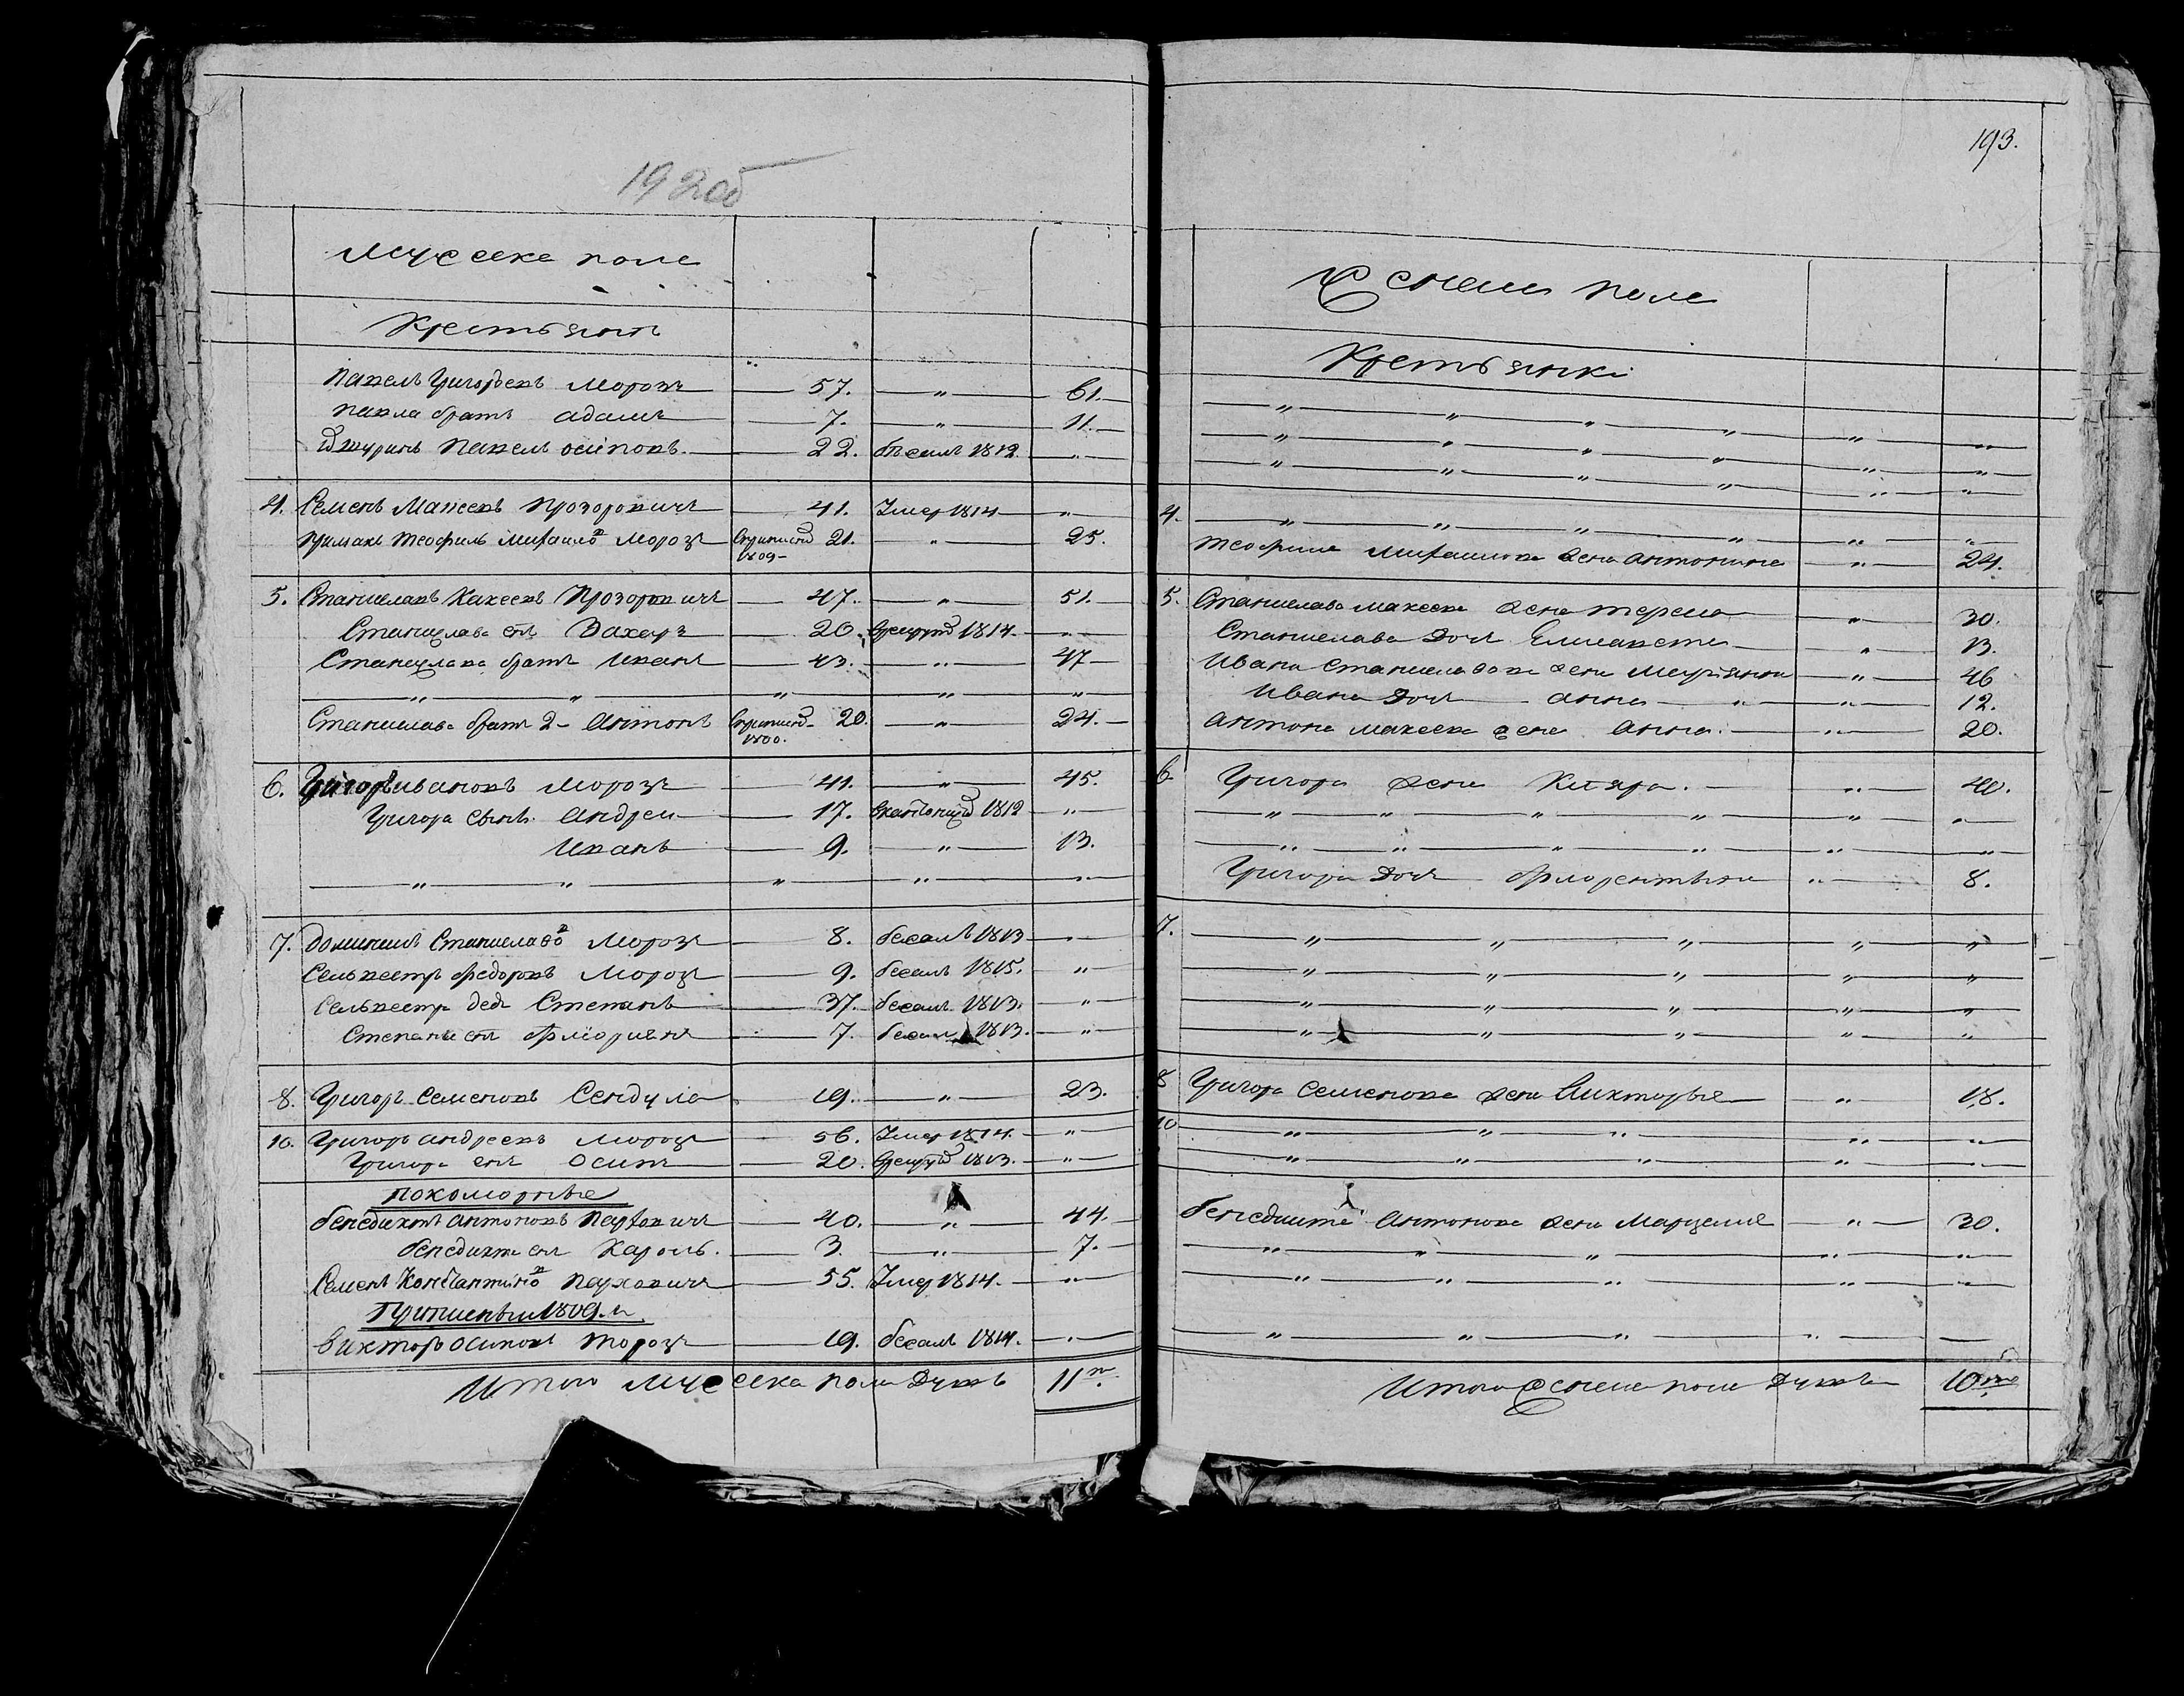 192об
Мужеска пола
Крестьянъ
Павелъ Григорьевъ Морозъ 57. „ 61.
Павла братъ Адамъ 7. „ 11.
Павелъ Осиповъ. 22. бежалъ 1812 „
4. Семенъ Матеевъ Прозоровичъ 41. Умер 1814 „
Теофиль Михайло Морозъ 21. „ 25.
1809
5. Станиславъ Макеевъ Прозоровичъ 47. „ 51.
Станислава сы Захаръ 20. 1814. „
Станислава братъ Иванъ 43. „ 47
„ „ „ „ „
Станислава братъ 2 Антонъ 20. „ 24.
1800.
6. Григоръ Ивановъ Морозъ 41. „ 45.
Григора сынъ Андрей 17. 1812 „
Иванъ 9. „ 13.
„ „ „ „ „
7. Станиславо Морозъ 8. бежалъ 1813 „
Сельвестръ Федоровъ Морозъ 9. бежалъ 1815. „
Сельвестра дедъ Степанъ 37. бежалъ 1813. „
Степана сы Флориянъ 7. бежалъ 1813. „
8. Григоръ Семеновъ Сендула 19. „ 23.
10. Григоръ Андреевъ Морозъ 56. Умер 1814. „
Григора сы Осипъ 20. 1813. „
Бенедиктъ Антоновъ 40. „ 44.
Бенедикта сы Кароль. 3. „ 7.
Семенъ 55. Умер 1814. „
1809.
Викторъ Осиповъ Морозъ 19. бежалъ 1814. „
Итого мужеска пола душъ 11
193.
Женска пола
Крестьянки
„ „ „ „ „ „
„ „ „ „ „ „
„ „ „ „ „ „
4. „ „ „ „ „ „
Теофиля Михайлова жена Антонина „ 24.
5. Станислава Макеева жена Тереса „ 30.
Станислава дочь Елисавета „ 13.
Ивана жена Марьянна „ 46
Ивана дочь Анна „ „ 12.
Антона Макеева жена Анна. „ 20.
6 Григора жена „ 40.
„ „ „ „ „ „
„ „ „ „ „ „
Григора дочь Флорентына „ 8.
7. „ „ „ „ „
„ „ „ „ „
„ „ „ „ „
„ „ „ „ „
8 Григора Семенова жена Викторья „ 18.
10 „ „ „ „ „
„ „ „ „ „
Бенедикта Антонова жена Марцелия „ 30.
„ „ „ „ „
„ „ „ „ „
„ „ „ „
Итого женска пола душъ 10